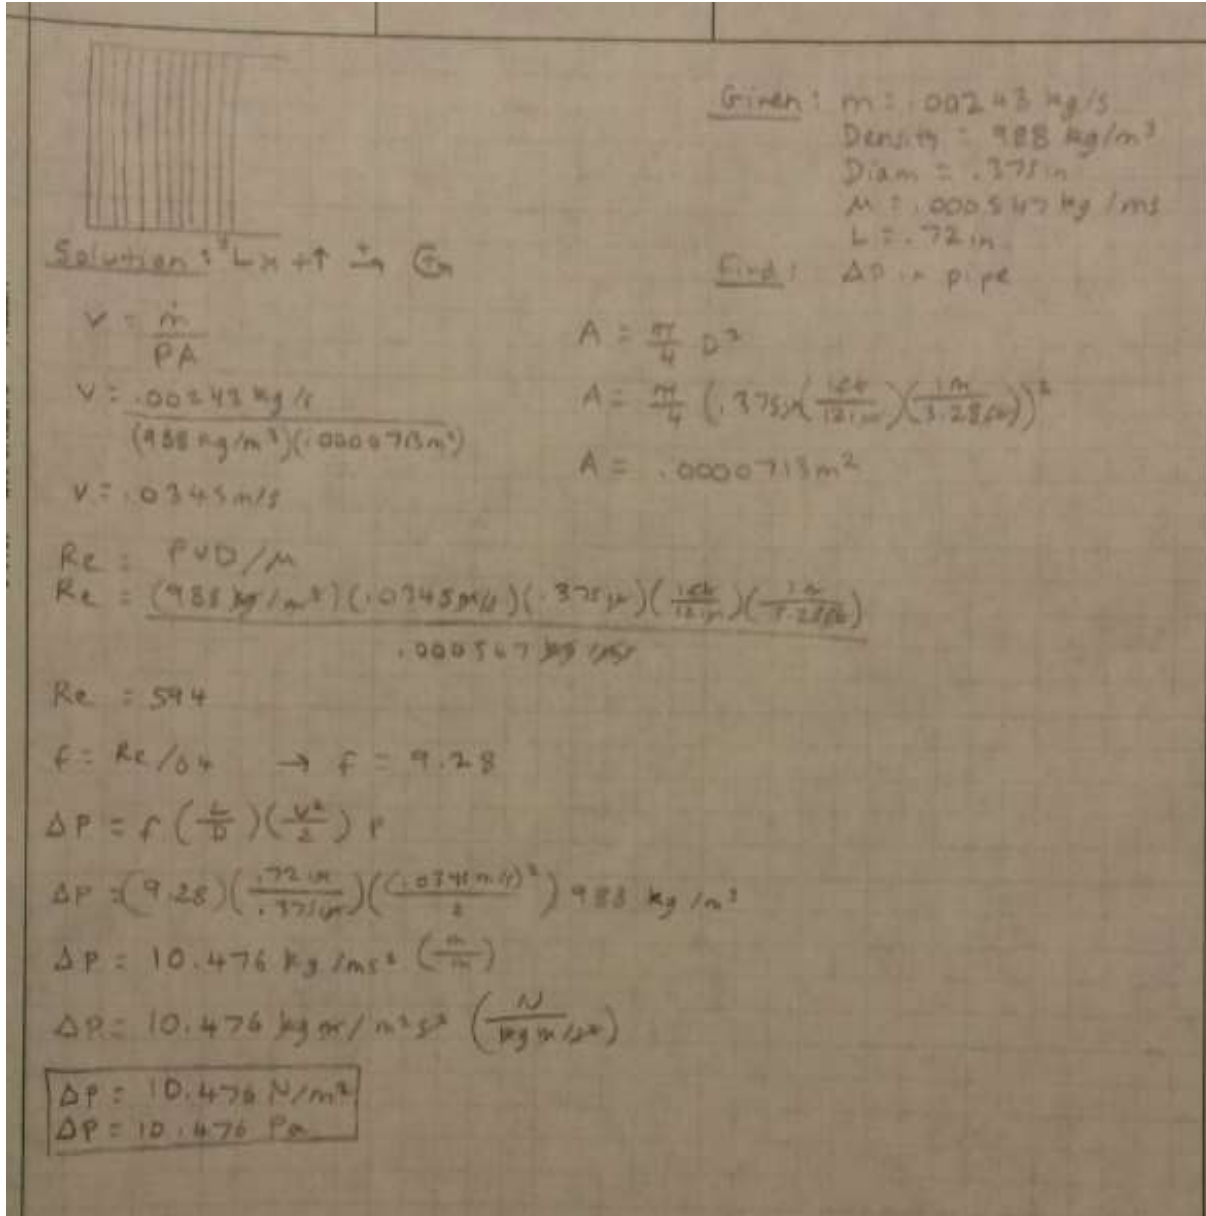 Given: m = .00243 kg/s
Density = 988 kg/m³
Diam = .375in
M = .000547 kg/ms
L = .72 in
Find: ΔP in pipe
Solution:
V = ṁ / PA
A = π/4 D²
V = .00243 kg/s / (988 kg/m³)(.0000713m²)
A = π/4 (.375in(1ft/12in)(1m/3.28ft))²
A = .0000713m²
V = .0345m/s
Re = PVD/M
Re = (988 kg/m³)(.0345m/s)(.375in)(1ft/12in)(1m/3.28ft) / .000547 kg/ms
Re = 594
f = Re/64 → f = 9.28
ΔP = f (L/D)(V²/2) P
ΔP = (9.28)(.72in/.375in)((.0345m/s)²/2) 988 kg/m³
ΔP = 10.476 kg/ms² (m/m)
ΔP = 10.476 kg m/m²s² (N/kg m/s²)
ΔP = 10.476 N/m²
ΔP = 10.476 Pa